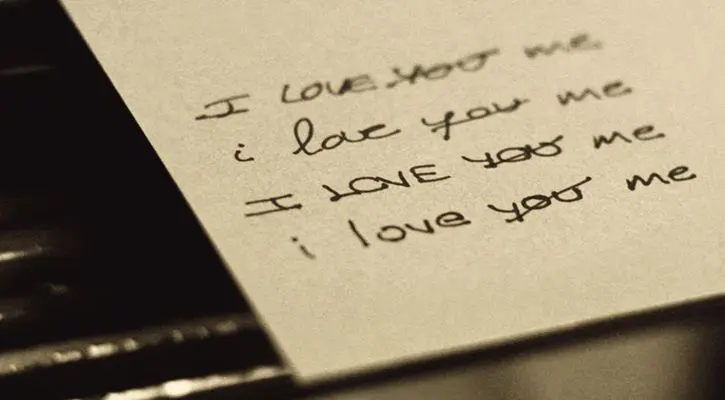 I LOVE you me
i love you me
I LOVE you me
i love you me